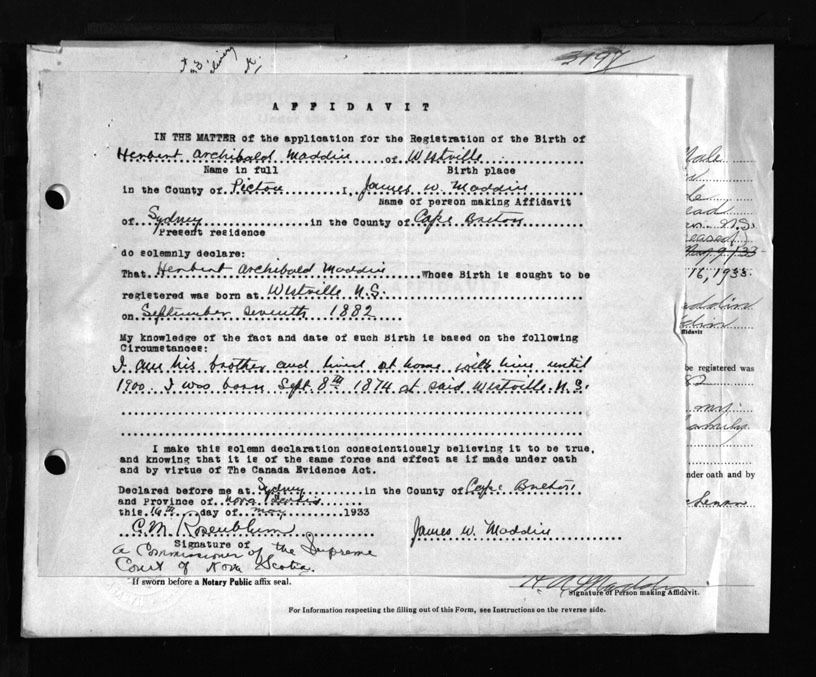 3197
AFFIDAVIT
IN THE MATTER of the application for the Registration of the Birth of
Herbert Archibald Maddin of Westville
Name in full Birth place
in the County of Pictou I, James W. Maddin
Name of person making Affidavit
of Sydney in the County of Cape Breton
Present residence
do solemnly declare:
That Herbert Archibald Maddin Whose Birth is sought to be
registered was born at Westville N.S.
on September seventh 1882
My knowledge of the fact and date of such Birth is based on the following
Circumstances:
I am his brother and lived at home with him until
1900. I was born Sept. 8th 1874 at said Westville N.S.
I make this solemn declaration conscientiously believing it to be true,
and knowing that it is of the same force and effect as if made under oath
and by virtue of The Canada Evidence Act.
Declared before me at Sydney in the County of Cape Breton
and Province of Nova Scotia
this 16th day of May 1933
C.M. Rosenblum James W. Maddin
Signature of
a Commissioner of the Supreme
Court of Nova Scotia.
If sworn before a Notary Public affix seal.
H A Maddin
Signature of Person making Affidavit.
For Information respecting the filling out of this Form, see Instructions on the reverse side.
Male
N.S.
eased)
16, 1933.
ddin
fidavit
be registered was
82
my
family
nder oath and by